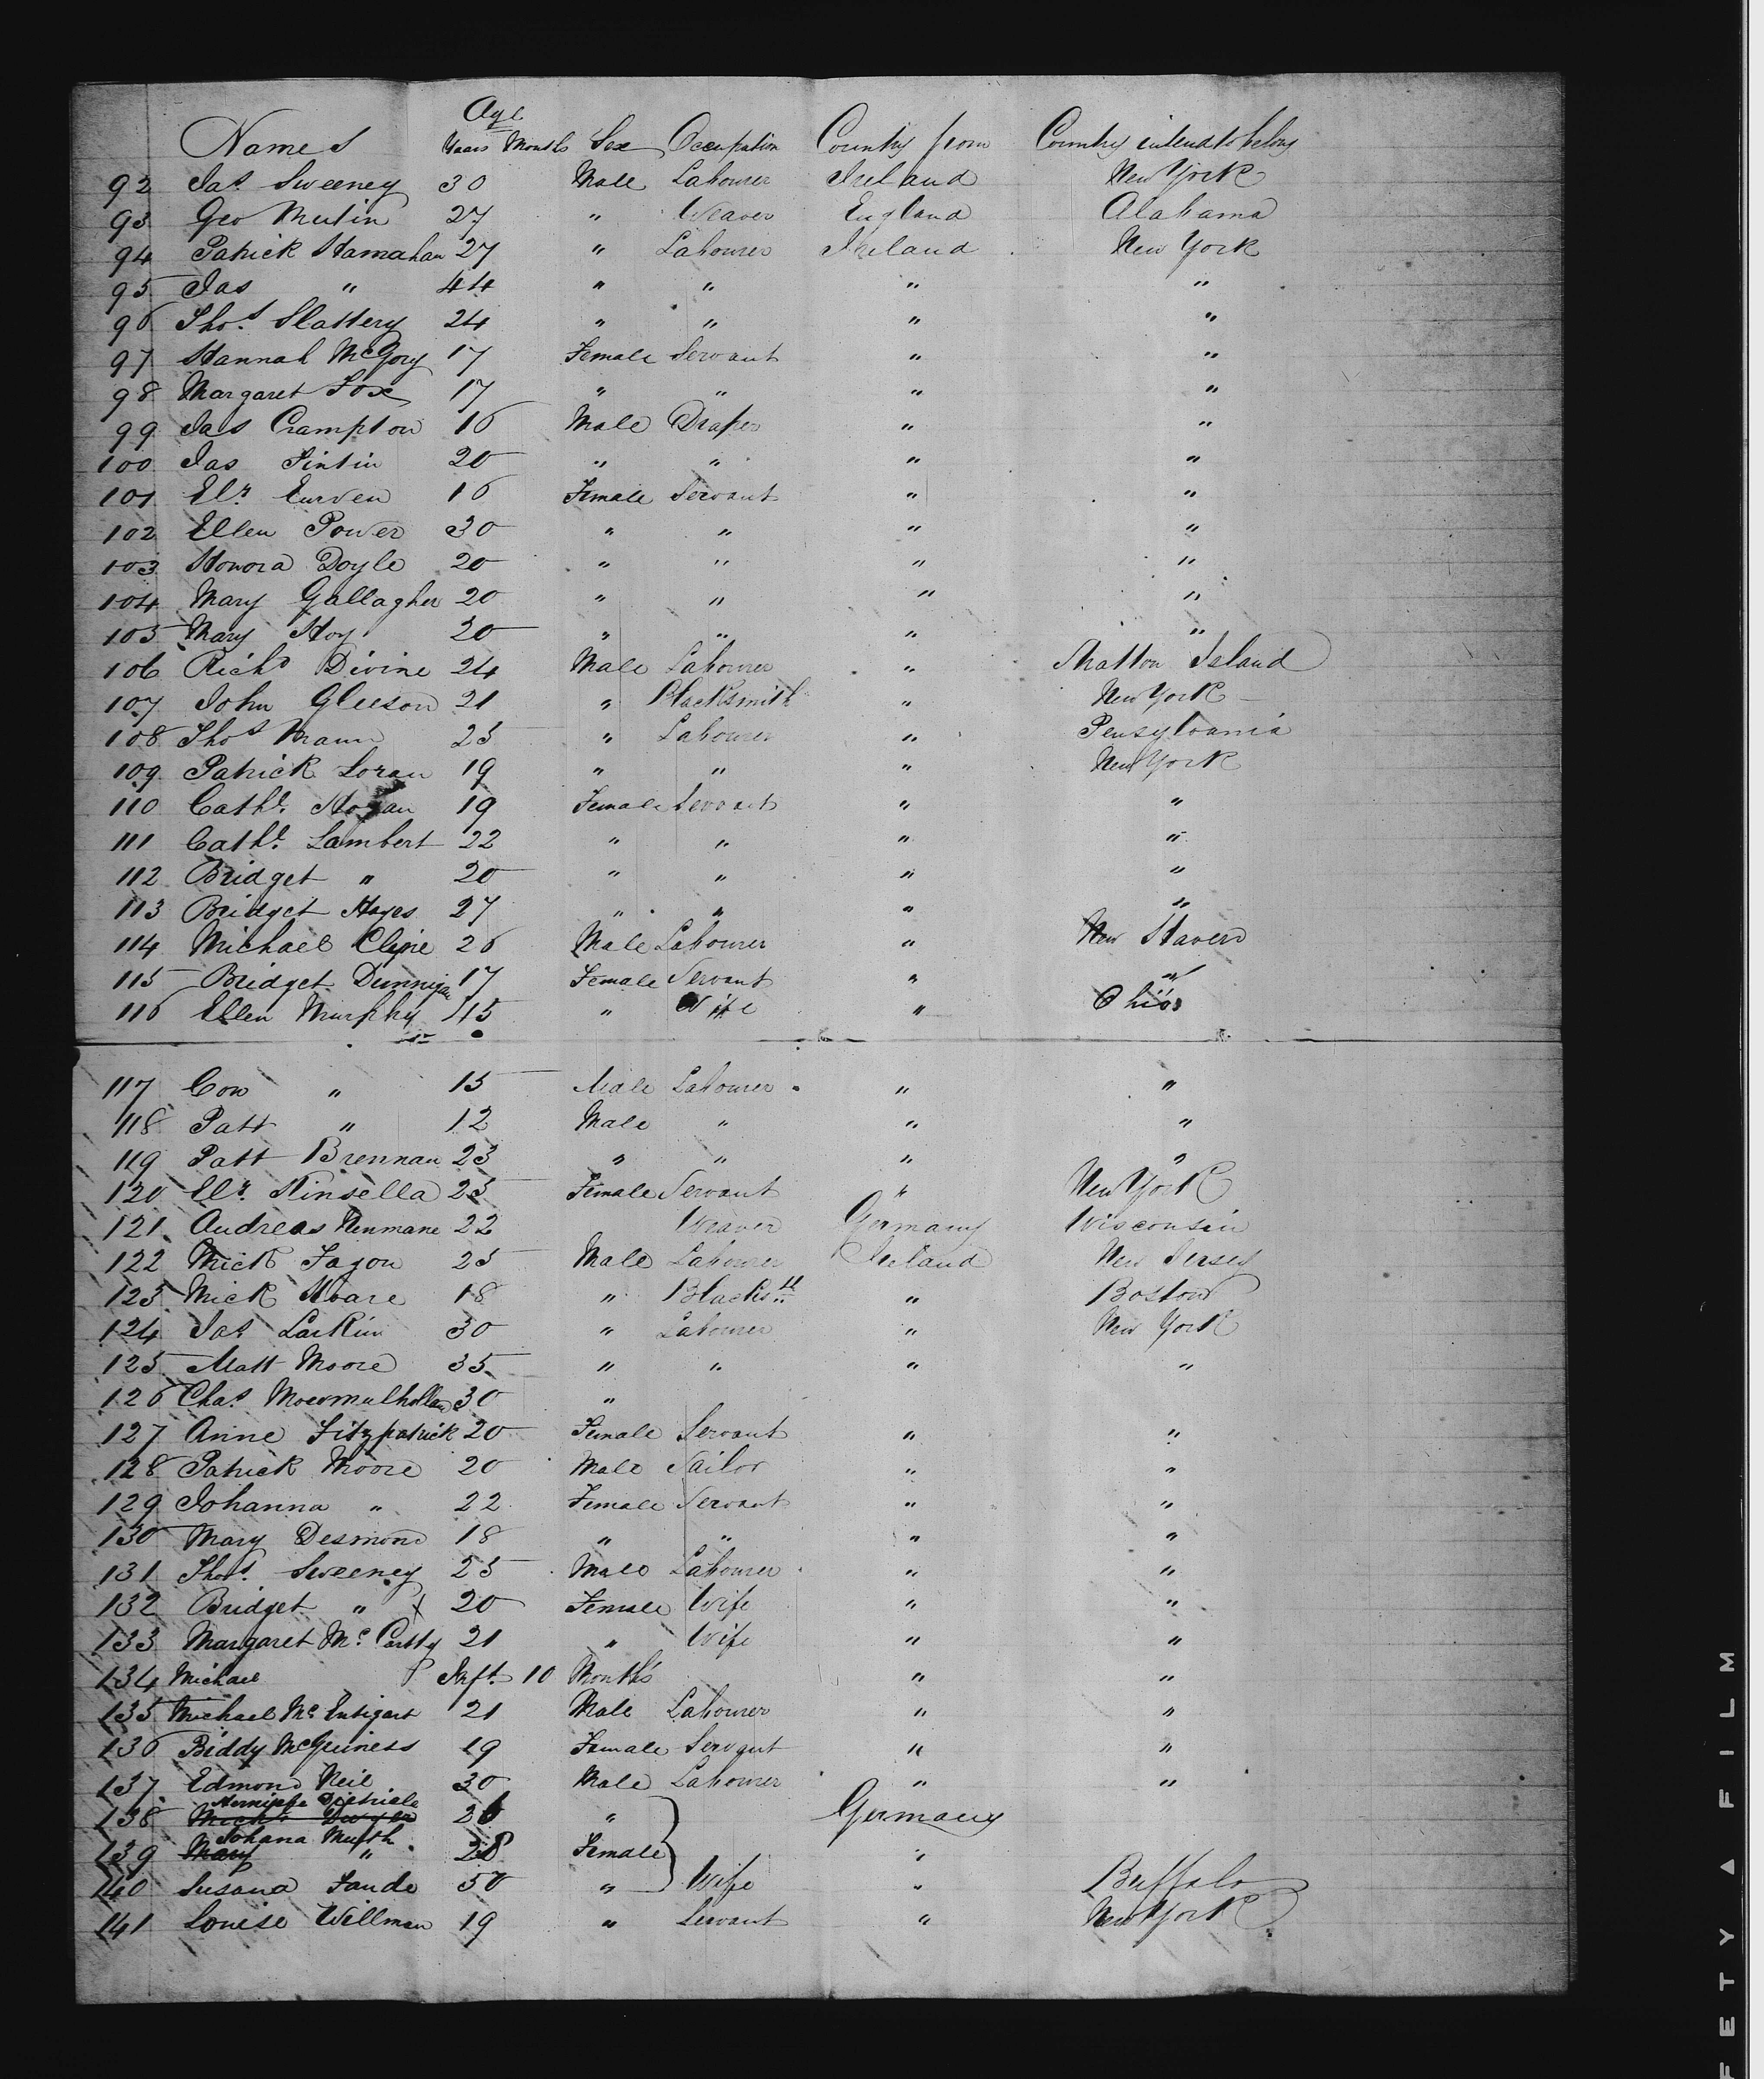 Age
Names Years Months Sex Occupation Country from Country intend to belong
92 Jas. Sweeney 30 Male Labourer Ireland New York
93 Geo Mutin 27 " Weaver England Alabama
94 Patrick Hamahan 27 " Labourer Ireland New York
95 Jas " 44 " " " "
96 Thos. Slattery 24 " " " "
97 Hannah McGory 17 Female Servant " "
98 Margaret Fox 17 " " " "
99 Jas Crampton 16 Male Draper " "
100 Jas 20 " " " "
101 Elr. 16 Female Servant " "
102 Ellen Power 30 " " " "
103 Honora Doyle 20 " " " "
104 Mary Gallagher 20 " " " "
105 Mary Hoy 20 " " " "
106 Richd Divine 24 Male Labourer " Stratton Island
107 John Gleeson 21 " Blacksmith " New York
108 Thos 25 " Labourer " Pensylvania
109 Patrick Loran 19 " " " New York
110 Cathe. Hogan 19 Female Servant " "
111 Cathe. Lambert 22 " " " "
112 Bridget " 20 " " " "
113 Bridget Hayes 27 " " " "
114 Michael Clyne 26 Male Labourer " New Haven
115 Bridget Dunnigan 17 Female Servant " "
116 Ellen Murphy 45 " Wife " Ohio
117 Con " 15 Male Labourer " "
118 Patt " 12 Male " " "
119 Patt Brennan 23 " " " "
120 Elr. Kinsella 25 Female Servant " New York
121 Andreas Henmane 22 Weaver Germany Wisconsin
122 Mick Fagon 25 Male Labourer Ireland New Jersey
123 Mick Hoare 18 " Blacks " Boston
124 Jas Larkin 30 " Labourer " New York
125 Matt Moore 35 " " " "
126 Chas. 30 "
127 Anne Fitzpatrick 20 Female Servant " "
128 Patrick Moore 20 Male Tailor " "
129 Johanna " 22 Female Servant " "
130 Mary Desmond 18 " " " "
131 Thos. Sweeney 25 Male Labourer " "
132 Bridget " 20 Female Wife " "
133 Margaret Mc Cartty 21 " Wife " "
134 Michael Inft. 10 Months " "
135 Michael Mc Entigart 21 Male Labourer " "
136 Biddy McGuiness 19 Female Servant " "
137 Edmond Neil 30 Male Labourer " "
138 Michl Dwyer 26 " Germany
Johana Muth
139 Mary " 28 Female "
140 Susana Faude 50 " Wife " Buffalo
141 Louise Willman 19 " Servant " New York
FETY ▲ FILM